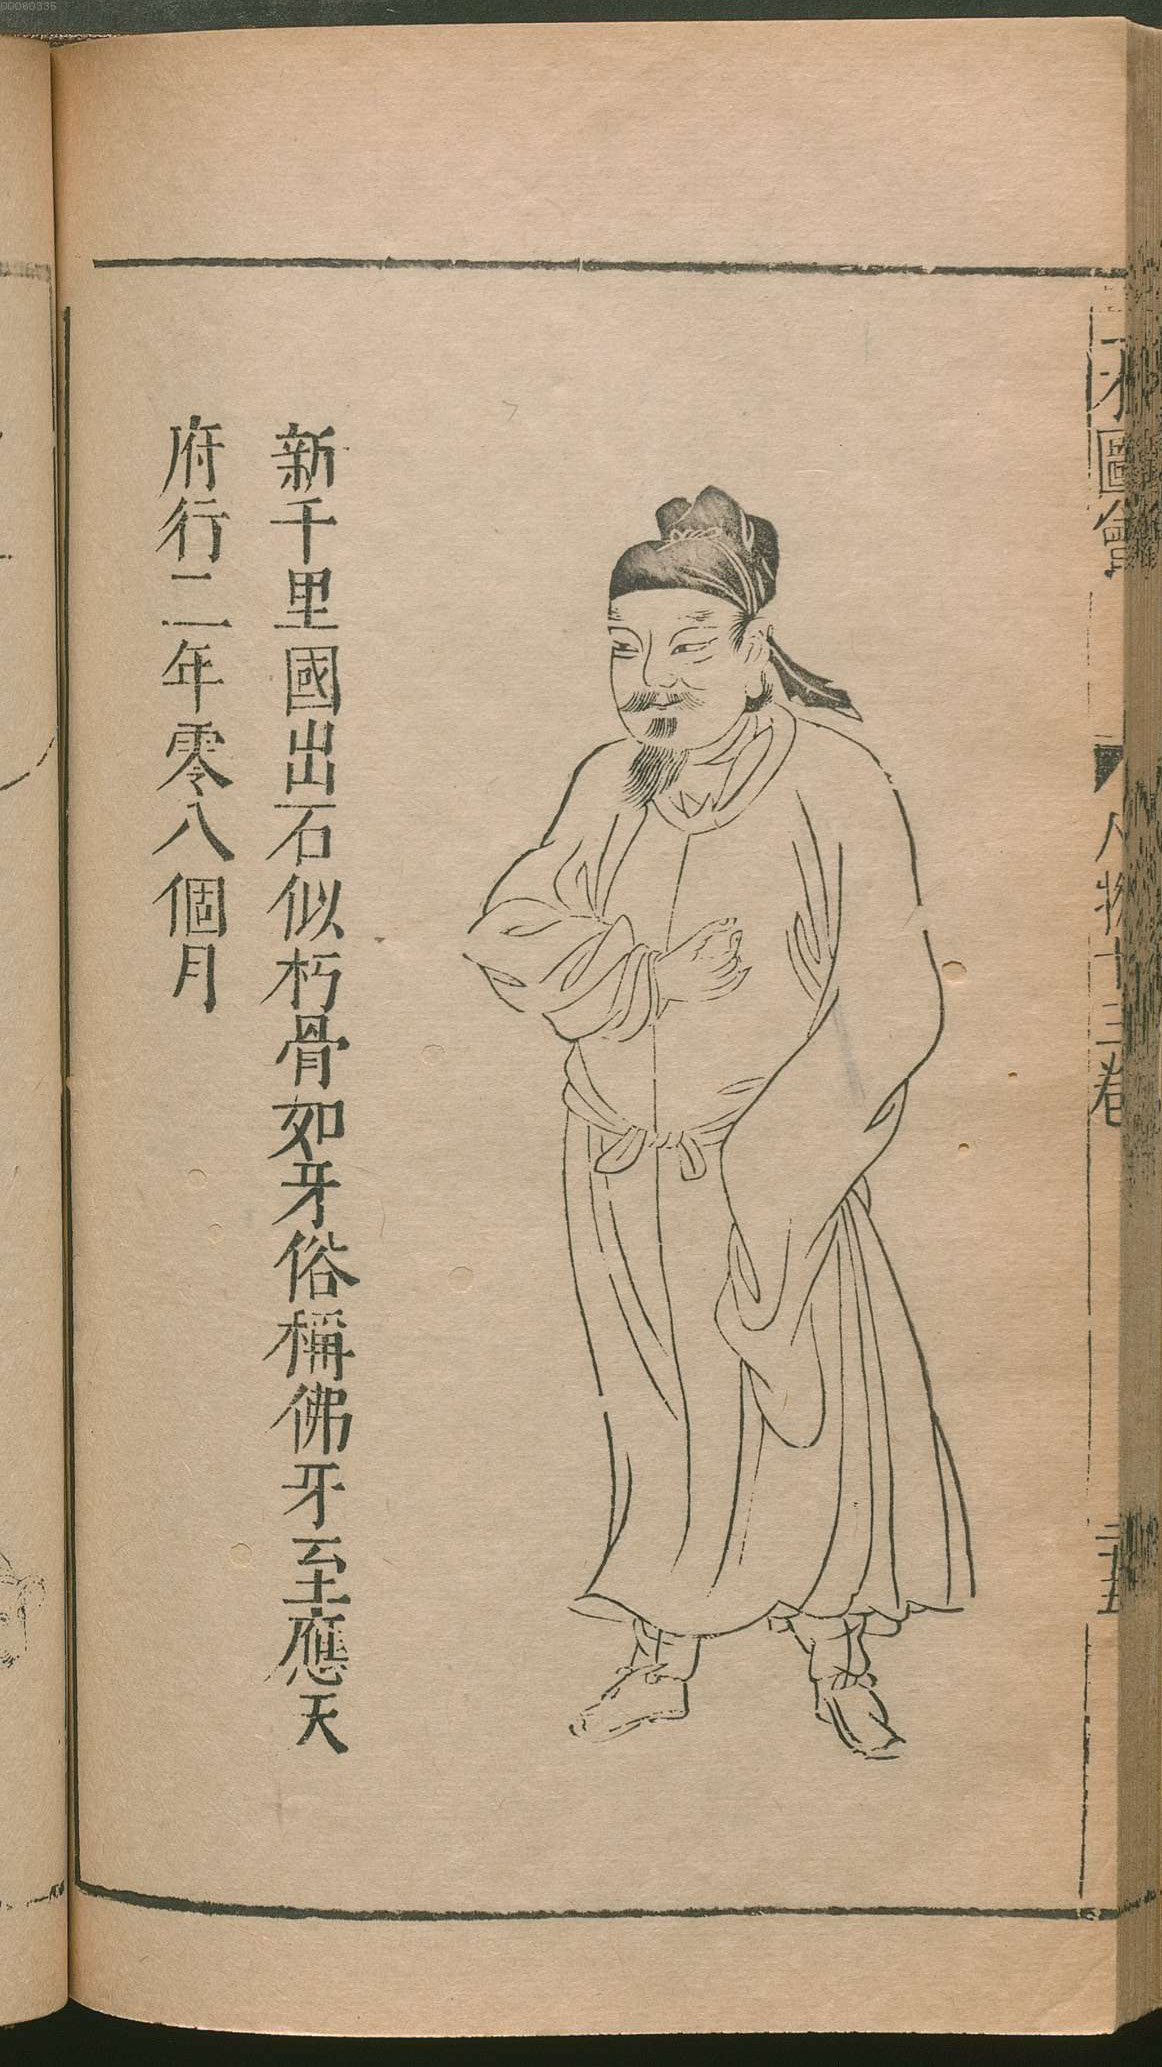 圖會
人物十三卷
新千里國出石似朽骨如牙俗稱佛牙至應天
府行二年零八個月
00060335